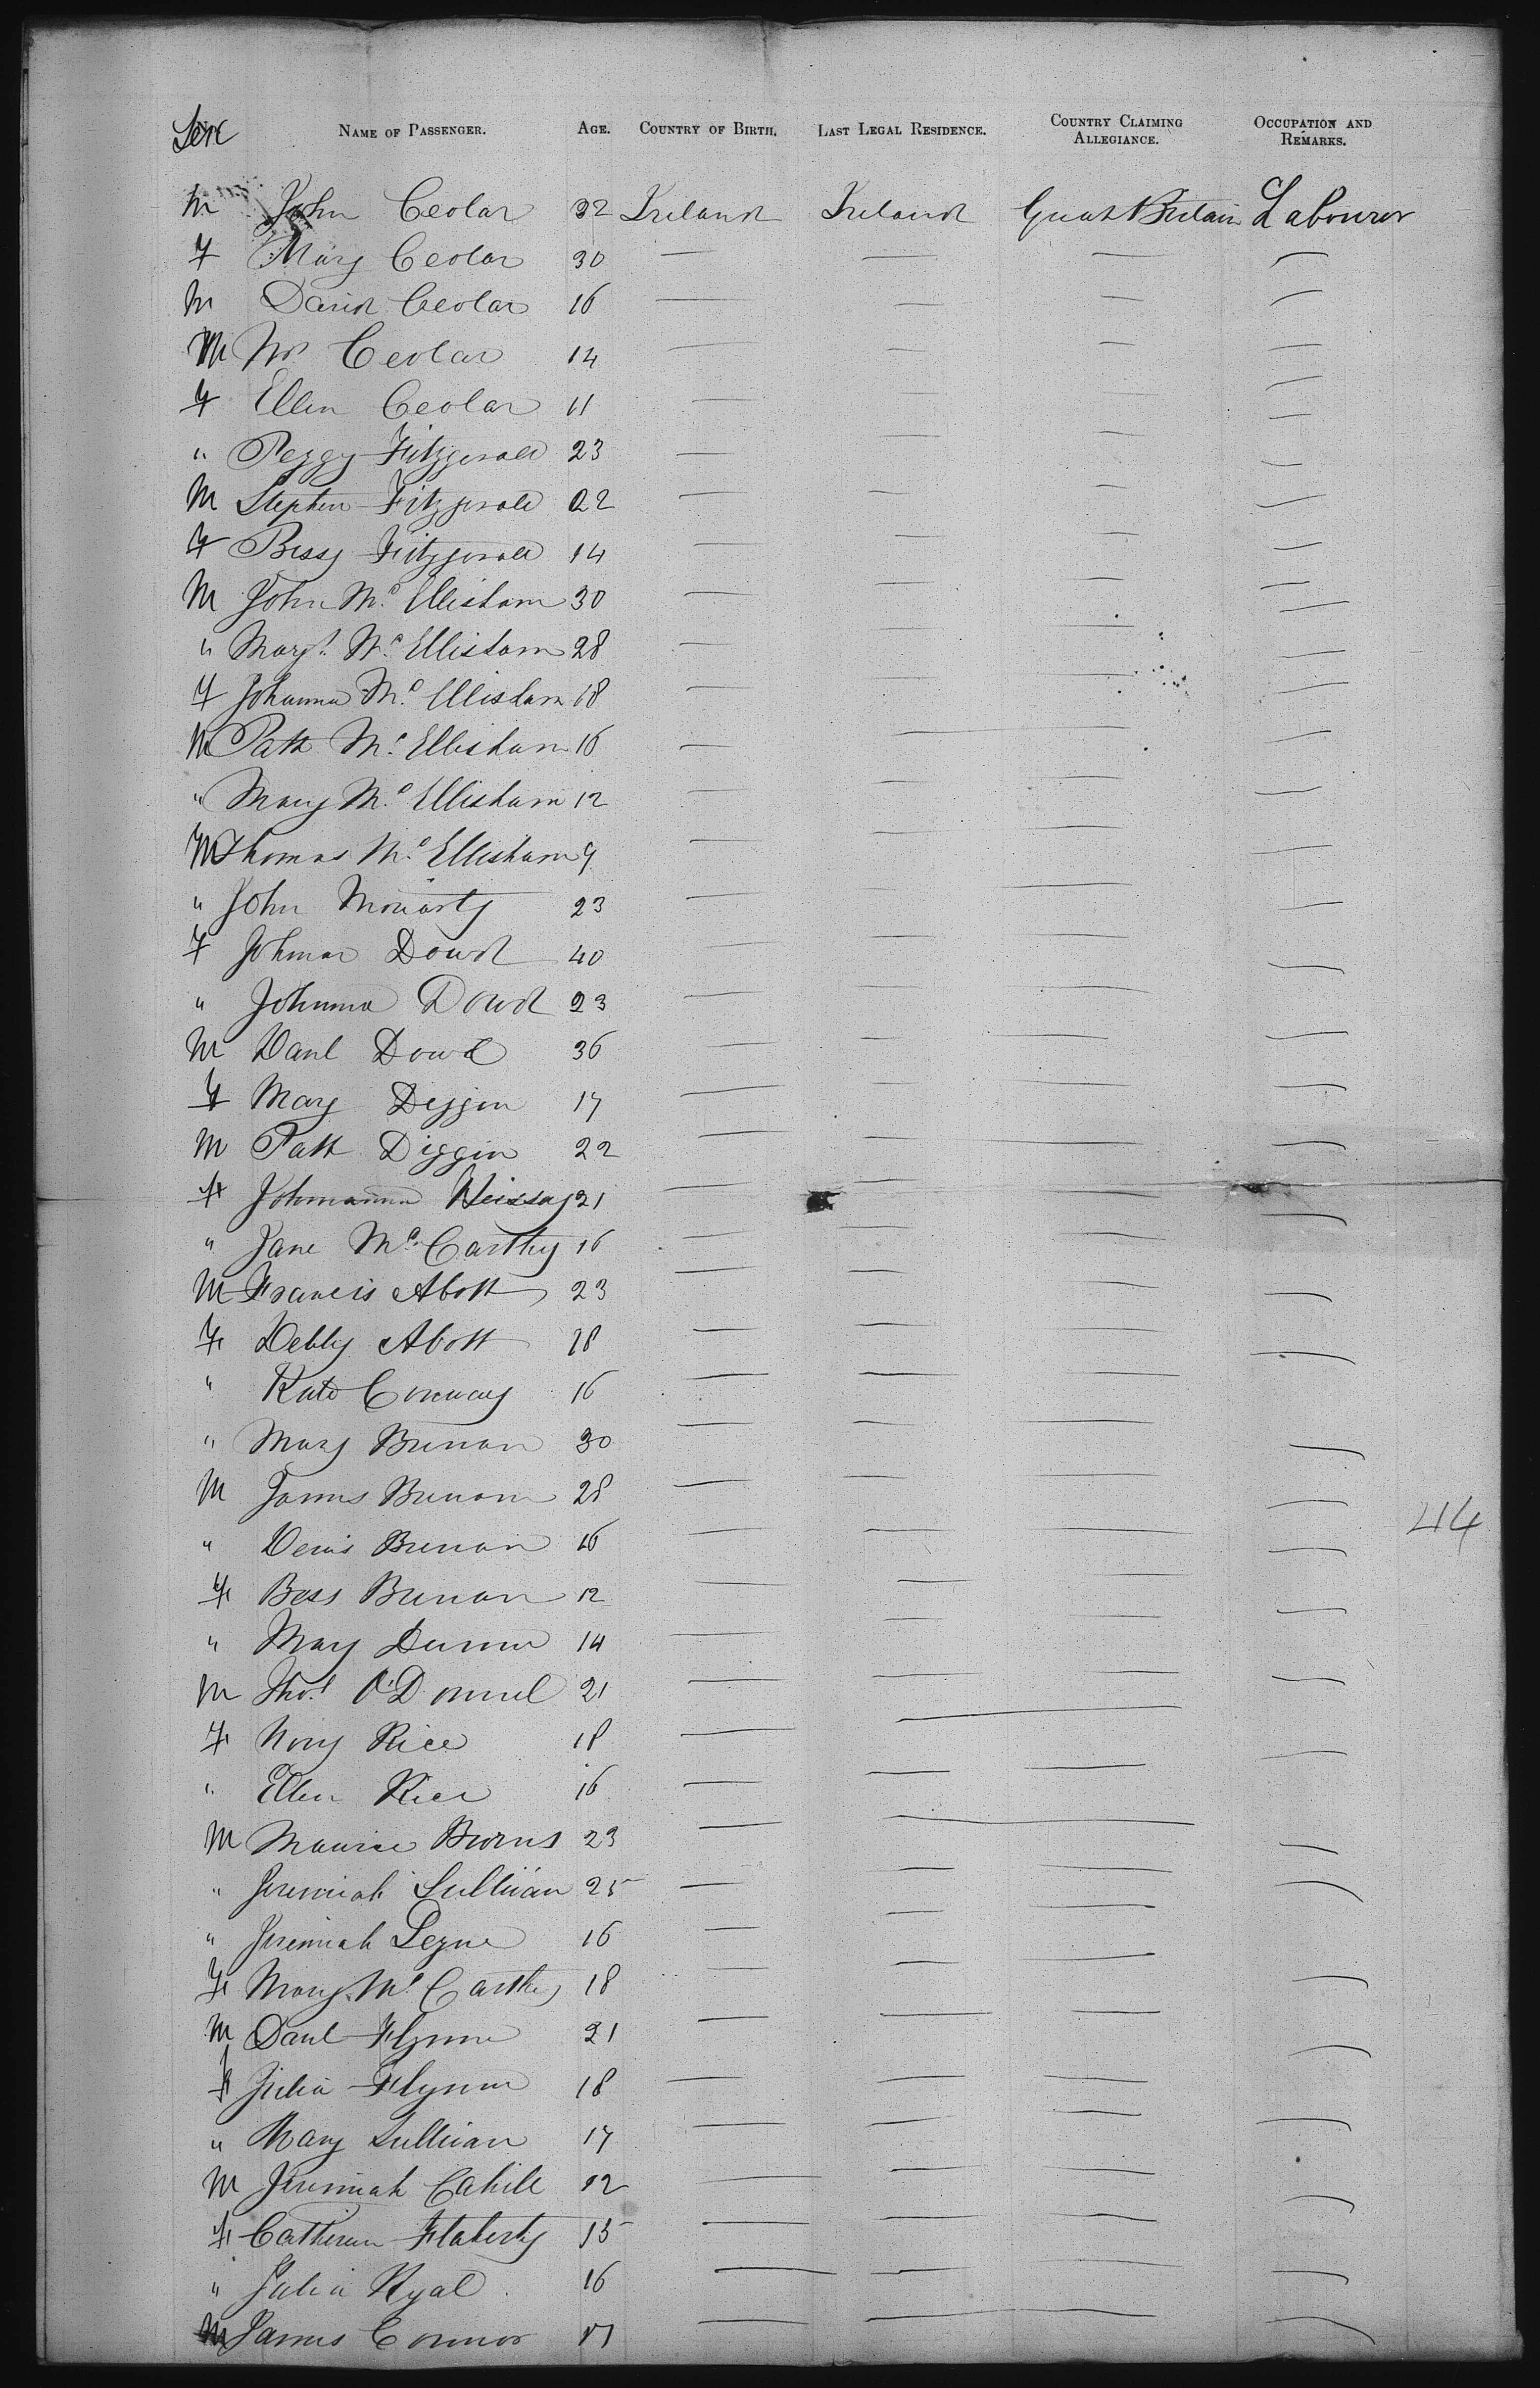 Sex NAME OF PASSENGER. AGE. COUNTRY OF BIRTH. LAST LEGAL RESIDENCE. COUNTRY CLAIMING ALLEGIANCE. OCCUPATION AND REMARKS.
M John Ceolar 32 Ireland Ireland Great Britain Labourer
F Mary Ceolar 30 — — — —
M David Ceolar 16 — — — —
M Wm Ceolar 14 — — — —
F Ellen Ceolar 11 — — — —
" Peggy Fitzgerald 23 — — — —
M Stephen Fitzgerald 22 — — — —
F Bessy Fitzgerald 14 — — — —
M John Mc Ellisham 30 — — — —
" Margt. Mc Ellisham 28 — — — —
F Johanna Mc Ellisham 18 — — — —
M Patk Mc Ellisham 16 — — — —
" Mary Mc Ellisham 12 — — — —
M Thomas Mc Ellisham 9 — — — —
" John Moriarty 23 — — — —
F Dowd 40 — — — —
" Johanna Dowd 23 — — — —
M Danl Dowd 36 — — — —
F Mary Diggin 17 — — — —
M Patk Diggin 22 — — — —
F 21 — — — —
" Jane Mc Carthy 16 — — — —
M Francis Abott 23 — — — —
F Debby Abott 18 — — — —
" Kate Conway 16 — — — —
" Mary Brenan 30 — — — —
M James Brenan 28 — — — —
44
" Denis Brenan 16 — — — —
F Bess Brenan 12 — — — —
" Mary 14 — — — —
M Thos. O'Donnel 21 — — — —
F Nory Rice 18 — — — —
" Ellen Rice 16 — — — —
M Maurice Burns 23 — — — —
" Jeremiah Sullivan 25 — — — —
" Jeremiah 16 — — — —
F Mary Mc Carthy 18 — — — —
M Danl Flynn 21 — — — —
F Julia Flynn 18 — — — —
" Mary Sullivan 17 — — — —
M Jeremiah Cahill 12 — — — —
F Catherine Flaherty 15 — — — —
" Julia Ryal 16 — — — —
M James Connor 17 — — — —